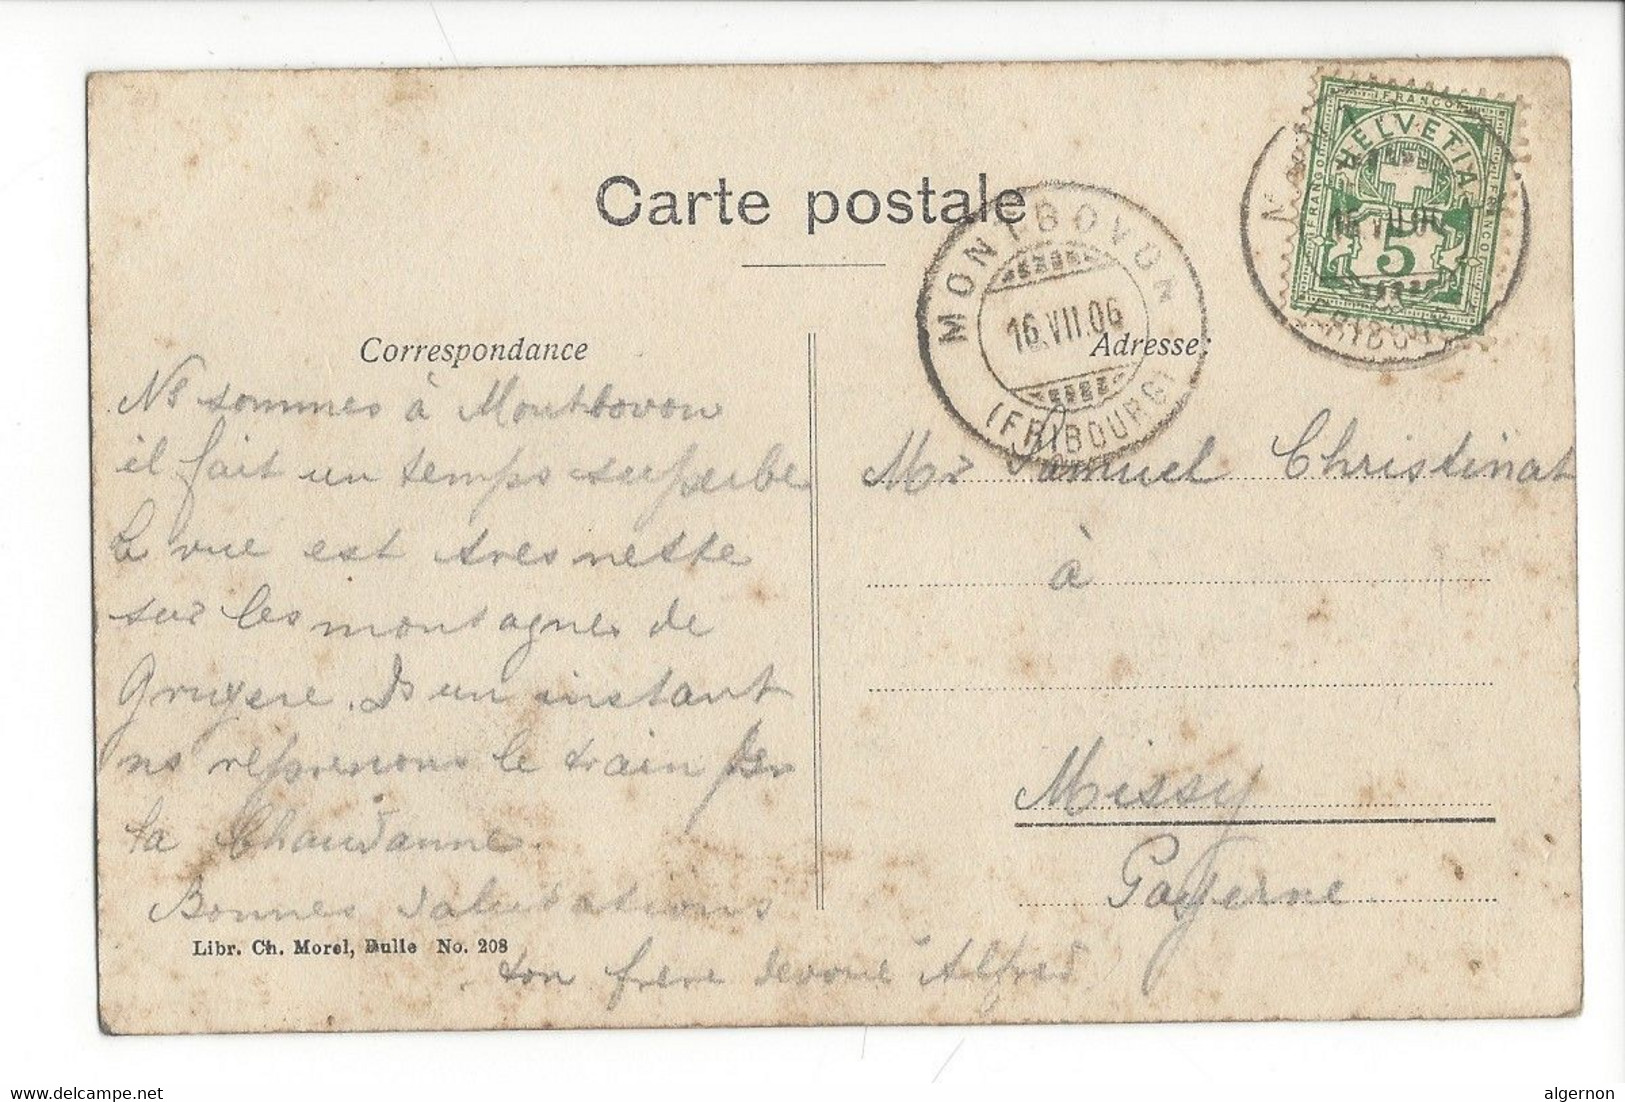 Carte postale
FRANCO
FRANCO
FRANCO
HELVETIA
16.VII.06
5
FRIBOURG
MONTBOVON
16.VII.06
(FRIBOURG)
Correspondance
Adresse:
Ns sommes à Montbovon
il fait un temps superbe
la vue est tres nette
sur les montagnes de
Gruyere. Ds un instant
ns reprenons le train per
la Chaudanne.
Bonnes salutations
ton frere devoué Alfred
Libr. Ch. Morel, Bulle No. 208
Mr Samuel Christinat
à
Missy
Payerne
delcampe.net
algernon